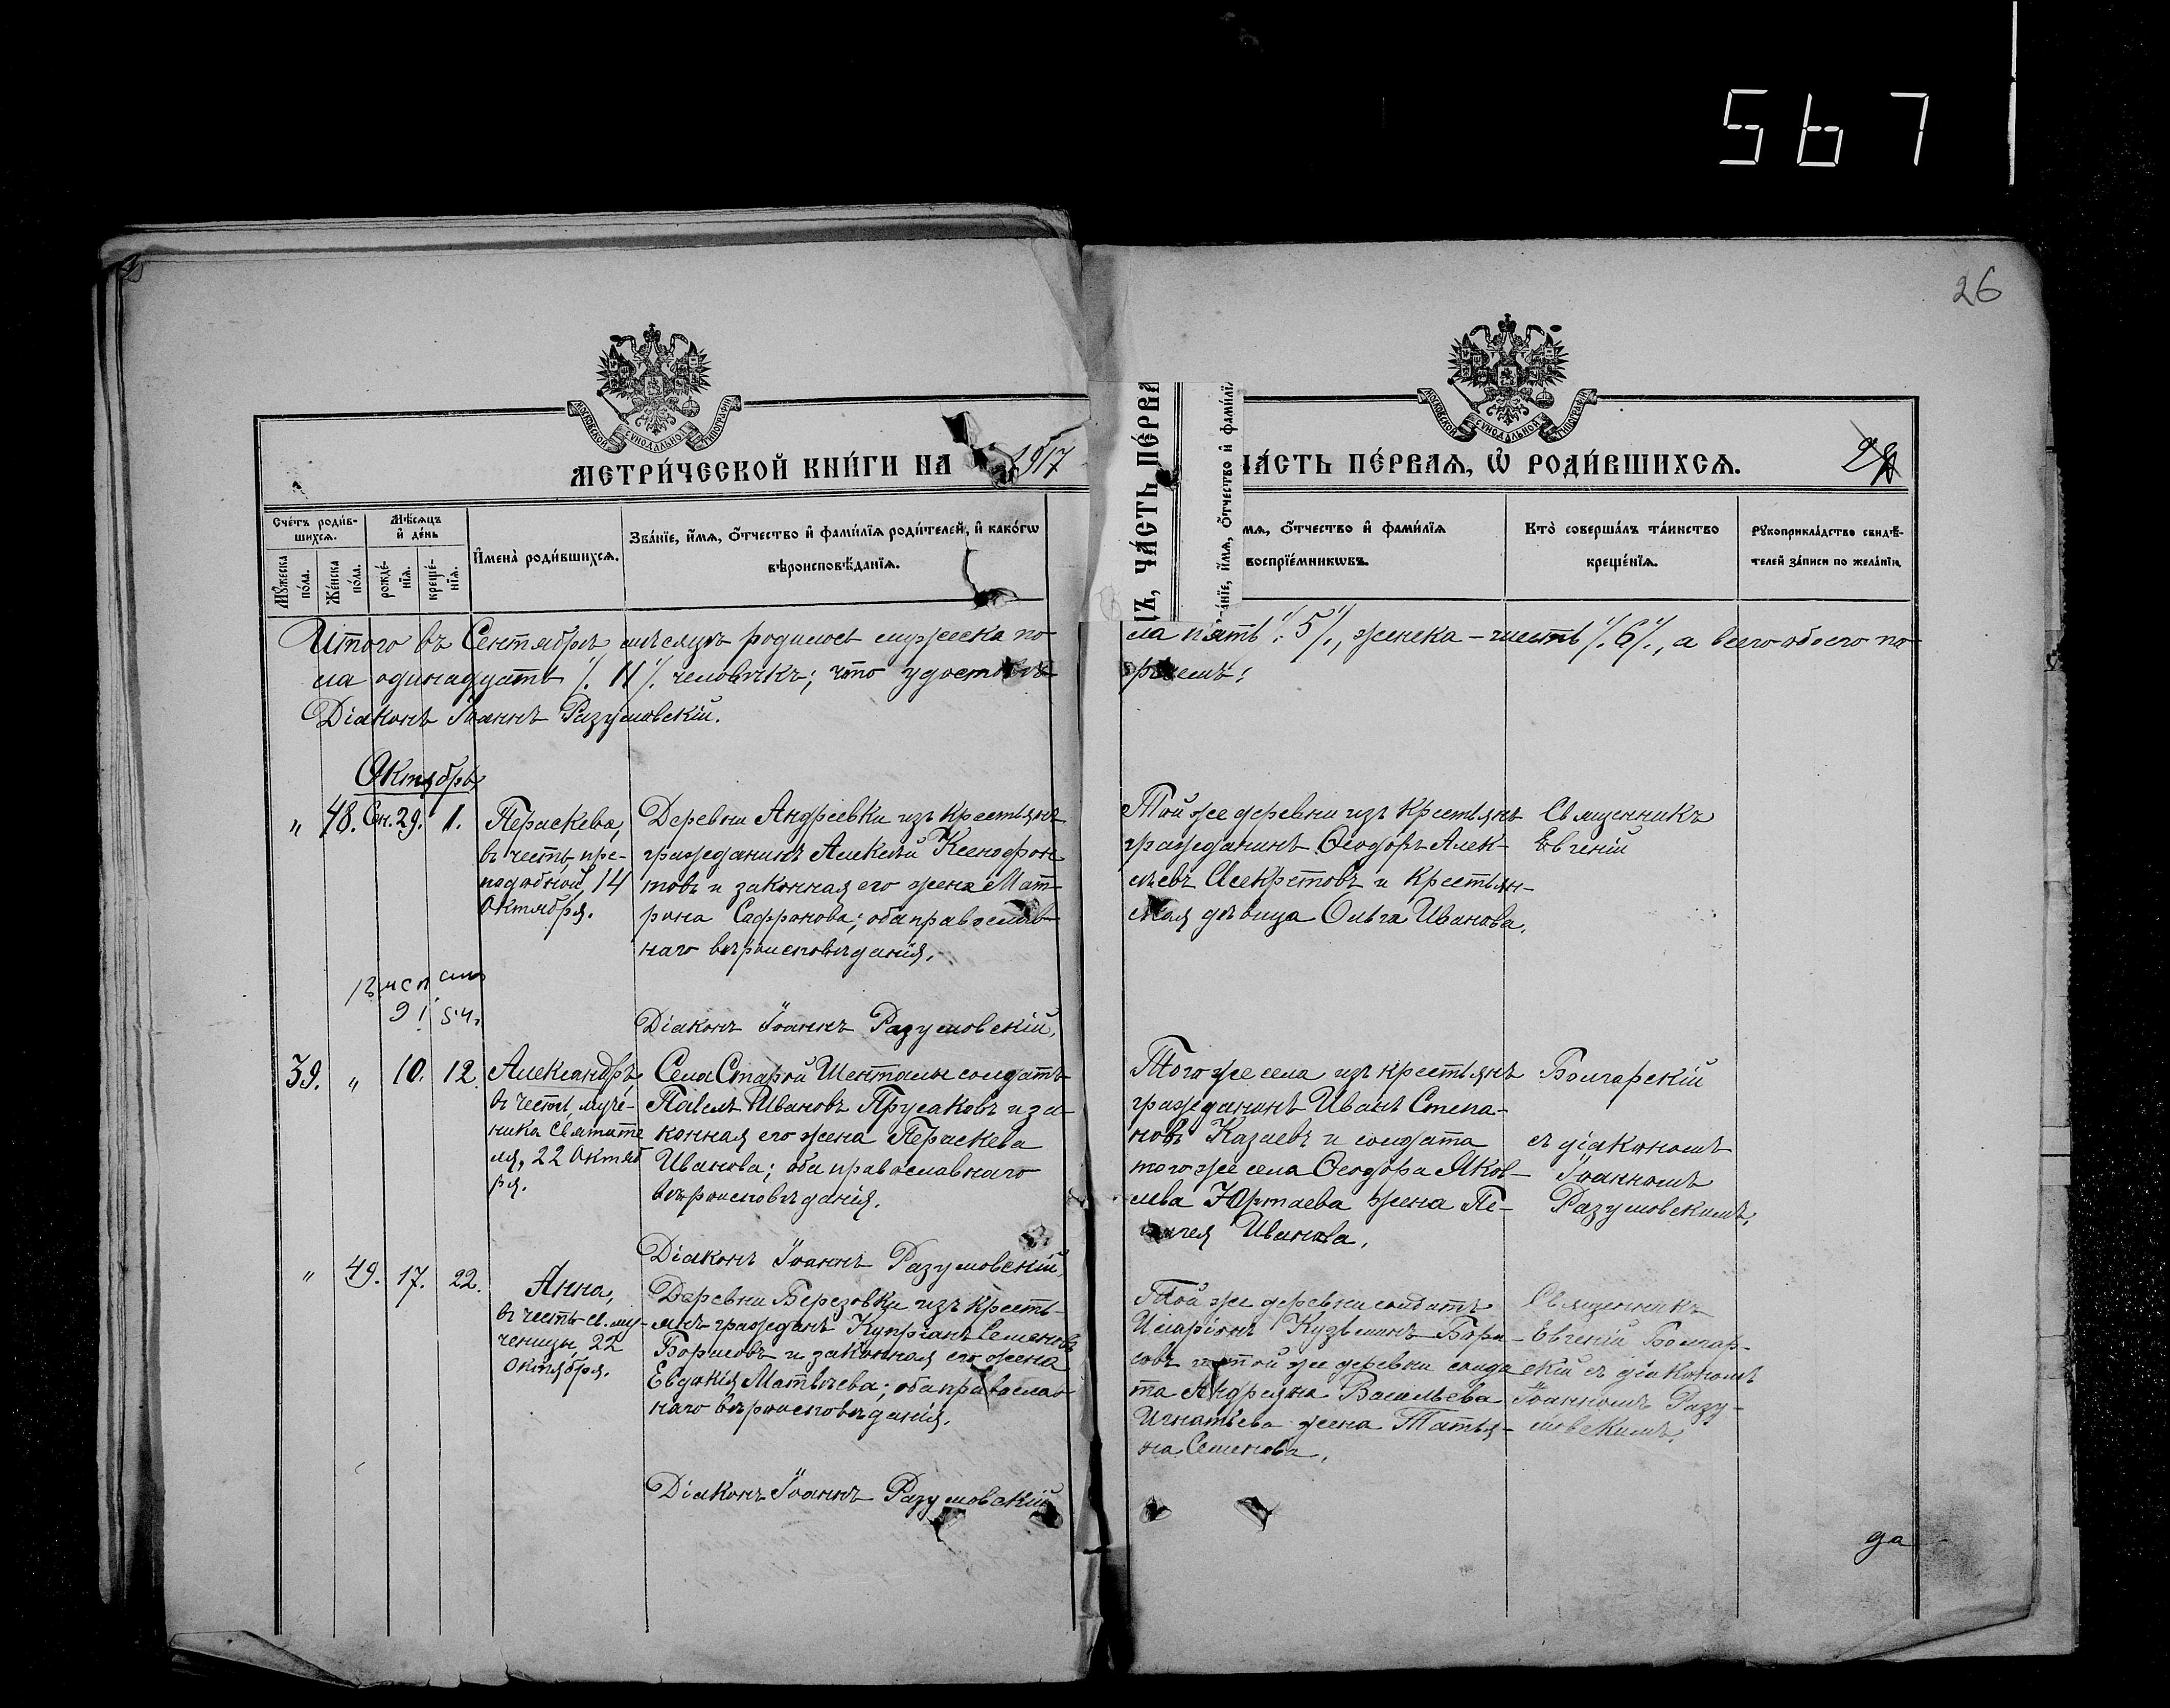 567
26
МОСКОВСКОЙ СѴНОДАЛЬНОЙ ТИПОГРАФІИ
МОСКОВСКОЙ СѴНОДАЛЬНОЙ ТИПОГРАФІИ
МЕТРИ́ЧЕСКОЙ КНИ́ГИ НА 1917
ЧА́СТЬ ПЕ́РВАѦ, Ѽ РОДИ́ВШИХСѦ.
ЧА́СТЬ ПЕ́РВА
Сче́тъ роди́в-
шихсѧ.
Мꙋ́жеска
по́ла.
Же́нска
по́ла.
Мѣ́сѧцъ
и҆ де́нь
рожде́-
нїѧ.
креще́-
нїѧ.
И҆мена̀ роди́вшихсѧ.
Зва́нїе, и҆́мѧ, ѻ҆́тчество и҆ фами́лїѧ роди́телей, и҆ како́гѡ
вѣроисповѣ́данїѧ.
а́нїе, и҆́мѧ, ѻ҆́тчество и҆ фами́лїѧ
мѧ, ѻ҆́тчество и҆ фами́лїѧ
воспрїе́мникѡвъ.
Кто̀ соверша́лъ та́инство
креще́нїѧ.
Рꙋкоприкла́дство свидѣ́-
телей за́писи по жела́нїю.
Итого въ Сентябрѣ мѣсяцѣ родилось мужеска по-
ла пять ·/. 5 /., женска - шесть ·/. 6 /., а всего обоего по-
ла одинадцать ·/. 11 /. человѣкъ; что удостовѣ-
ряемъ:
Діаконъ Іоаннъ Разумовскій.
Октябрь
" 48. Сен. 29. 1.
Пераскева,
въ честь пре-
подобной, 14
Октября.
Деревни Андреевки изъ крестьянъ
гражданинъ Алексѣй Ксенофон
товъ и законная его жена Мат-
рона Сафронова; оба православ-
наго вѣроисповѣданія.
Діаконъ Іоаннъ Разумовскій.
Той же деревни изъ крестьянъ
гражданинъ Ѳеодоръ Алек-
сѣевъ Асекретовъ и крестьян-
ская дѣвица Ольга Иванова.
Священникъ
Евгеній
39. " 10. 12.
Александръ
въ честь муче-
ника Святите
ля, 22 Октяб
ря.
Села Старой Шенталы солдатъ
Павелъ Ивановъ Прусаковъ и за-
конная его жена Пераскева
Иванова; оба православнаго
вѣроисповѣданія.
Діаконъ Іоаннъ Разумовскій.
Того же села изъ крестьянъ
гражданинъ Иванъ Степа-
новъ Казаевъ и солдата
того же села Ѳеодора Яков-
лева Юртаева жена Пе-
лагея Иванова.
Болгарскій
съ діакономъ
Іоанномъ
Разумовскимъ.
" 49. 17. 22.
Анна,
въ честь св. му-
ченицы, 22
Октября.
Деревни Березовки изъ кресть-
янъ гражданъ Купріанъ Семеновъ
Борисовъ и законная его жена
Евдокія Матвѣева; оба православ
наго вѣроисповѣданія.
Діаконъ Іоаннъ Разумовскій
Той же деревни солдатъ
Иларіонъ Кузьминъ Бори-
совъ и той же деревни солда
та Андреяна Васильева
Игнатьева жена Татья-
на Семенова.
Священникъ
Евгеній Болгар-
скій съ діакономъ
Іоанномъ Разу-
мовскимъ.
да